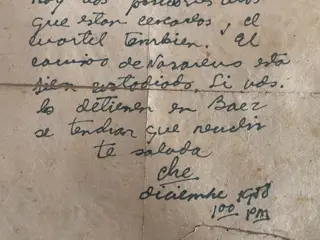 hay dos posiciones
que estan cercados, el
cuartel tambien. El
camino de Nazareno esta
bien custodiado. Si uds.
lo detienen en Baez
se tendran que rendir
te saluda
Che
diciembre 1958
1 00 PM